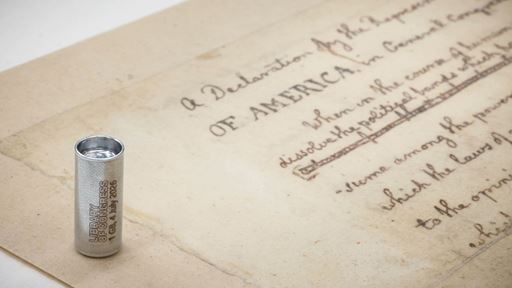 a Declaration by the Represen
OF AMERICA, in General Congres
When in the course of human
dissolve the political bands which ha
-sume among the powe
which the laws of
to the opini
which
LIBRARY
OF CONGRESS
1 GB, 4 July 2026